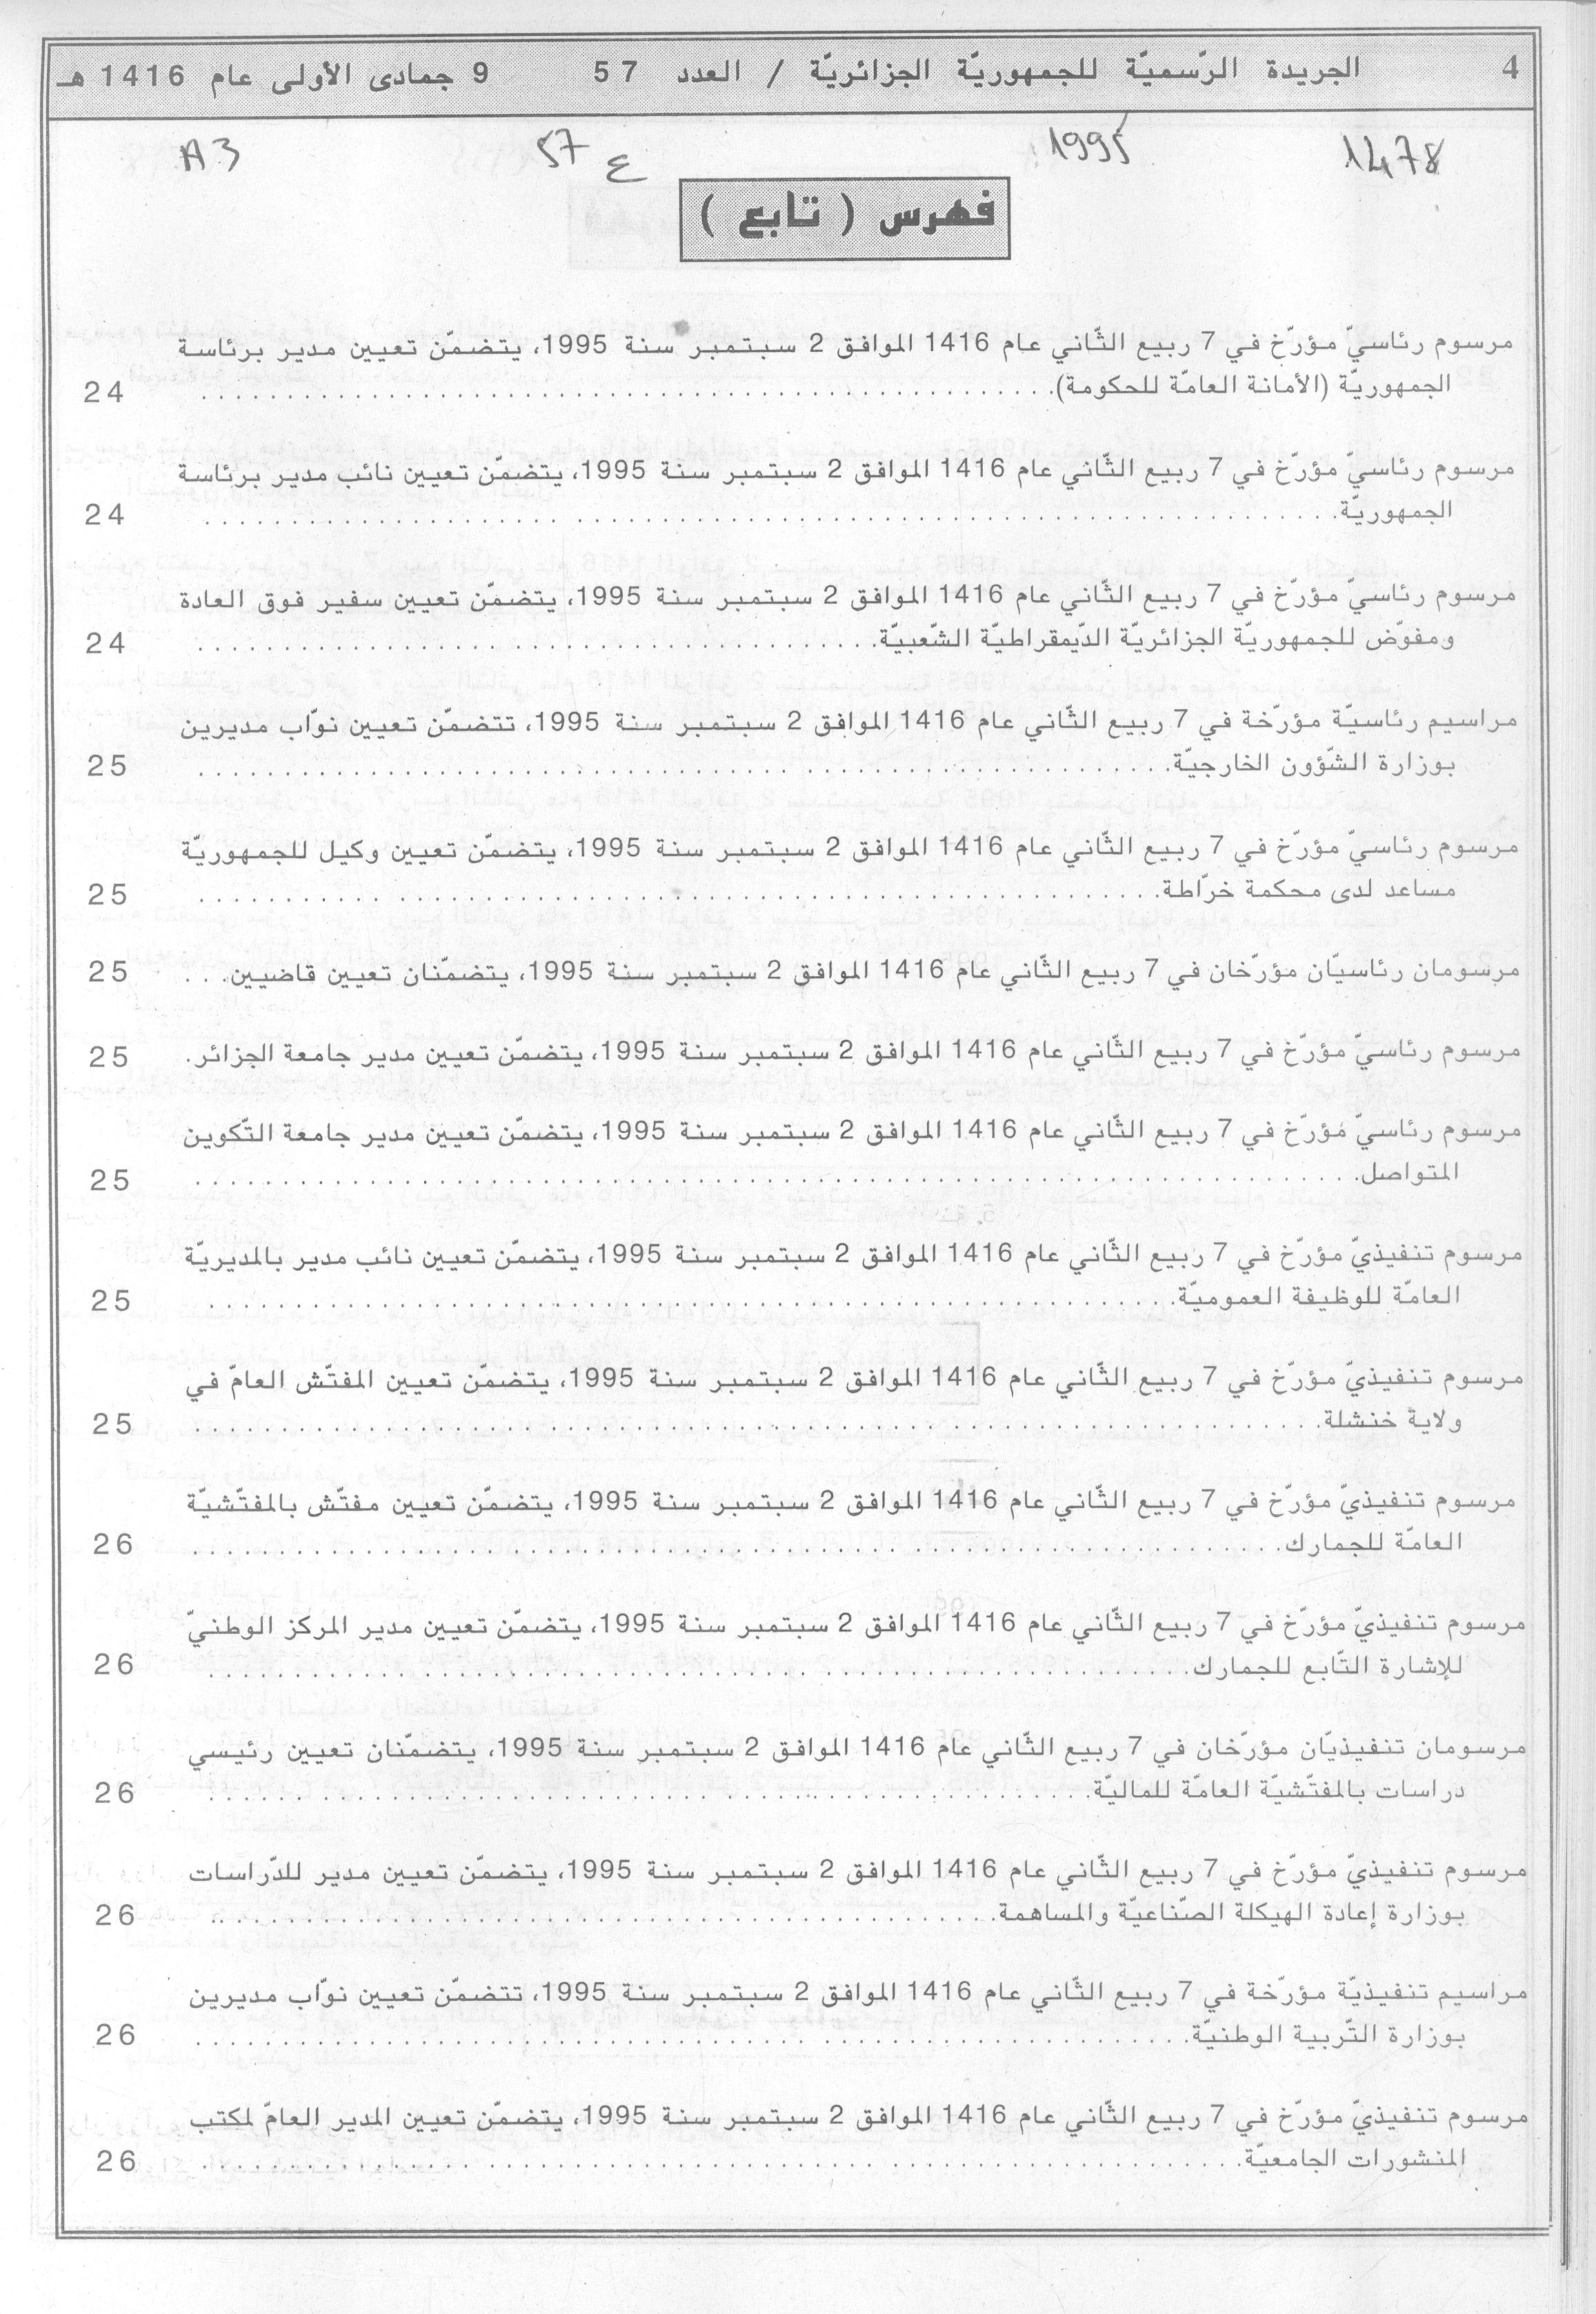 4 الجريدة الرّسميّة للجمهوريّة الجزائريّة / العدد 57 9 جمادى الأولى عام 1416 هـ
1478 1995 ع 57 A3
فهرس ( تابع )
مرسوم رئاسيّ مؤرّخ في 7 ربيع الثّاني عام 1416 الموافق 2 سبتمبر سنة 1995، يتضمّن تعيين مدير برئاسة
الجمهوريّة (الأمانة العامّة للحكومة). 24
مرسوم رئاسيّ مؤرّخ في 7 ربيع الثّاني عام 1416 الموافق 2 سبتمبر سنة 1995، يتضمّن تعيين نائب مدير برئاسة
الجمهوريّة. 24
مرسوم رئاسيّ مؤرّخ في 7 ربيع الثّاني عام 1416 الموافق 2 سبتمبر سنة 1995، يتضمّن تعيين سفير فوق العادة
ومفوّض للجمهوريّة الجزائريّة الدّيمقراطيّة الشّعبيّة. 24
مراسيم رئاسيّة مؤرّخة في 7 ربيع الثّاني عام 1416 الموافق 2 سبتمبر سنة 1995، تتضمّن تعيين نوّاب مديرين
بوزارة الشّؤون الخارجيّة. 25
مرسوم رئاسيّ مؤرّخ في 7 ربيع الثّاني عام 1416 الموافق 2 سبتمبر سنة 1995، يتضمّن تعيين وكيل للجمهوريّة
مساعد لدى محكمة خرّاطة. 25
مرسومان رئاسيّان مؤرّخان في 7 ربيع الثّاني عام 1416 الموافق 2 سبتمبر سنة 1995، يتضمّنان تعيين قاضيين. 25
مرسوم رئاسيّ مؤرّخ في 7 ربيع الثّاني عام 1416 الموافق 2 سبتمبر سنة 1995، يتضمّن تعيين مدير جامعة الجزائر. 25
مرسوم رئاسيّ مؤرّخ في 7 ربيع الثّاني عام 1416 الموافق 2 سبتمبر سنة 1995، يتضمّن تعيين مدير جامعة التّكوين
المتواصل. 25
مرسوم تنفيذيّ مؤرّخ في 7 ربيع الثّاني عام 1416 الموافق 2 سبتمبر سنة 1995، يتضمّن تعيين نائب مدير بالمديريّة
العامّة للوظيفة العموميّة. 25
مرسوم تنفيذيّ مؤرّخ في 7 ربيع الثّاني عام 1416 الموافق 2 سبتمبر سنة 1995، يتضمّن تعيين المفتّش العامّ في
ولاية خنشلة. 25
مرسوم تنفيذيّ مؤرّخ في 7 ربيع الثّاني عام 1416 الموافق 2 سبتمبر سنة 1995، يتضمّن تعيين مفتّش بالمفتّشيّة
العامّة للجمارك. 26
مرسوم تنفيذيّ مؤرّخ في 7 ربيع الثّاني عام 1416 الموافق 2 سبتمبر سنة 1995، يتضمّن تعيين مدير المركز الوطنيّ
للإشارة التّابع للجمارك. 26
مرسومان تنفيذيّان مؤرّخان في 7 ربيع الثّاني عام 1416 الموافق 2 سبتمبر سنة 1995، يتضمّنان تعيين رئيسي
دراسات بالمفتّشيّة العامّة للماليّة. 26
مرسوم تنفيذيّ مؤرّخ في 7 ربيع الثّاني عام 1416 الموافق 2 سبتمبر سنة 1995، يتضمّن تعيين مدير للدّراسات
بوزارة إعادة الهيكلة الصّناعيّة والمساهمة. 26
مراسيم تنفيذيّة مؤرّخة في 7 ربيع الثّاني عام 1416 الموافق 2 سبتمبر سنة 1995، تتضمّن تعيين نوّاب مديرين
بوزارة التّربية الوطنيّة. 26
مرسوم تنفيذيّ مؤرّخ في 7 ربيع الثّاني عام 1416 الموافق 2 سبتمبر سنة 1995، يتضمّن تعيين المدير العامّ لمكتب
المنشورات الجامعيّة. 26